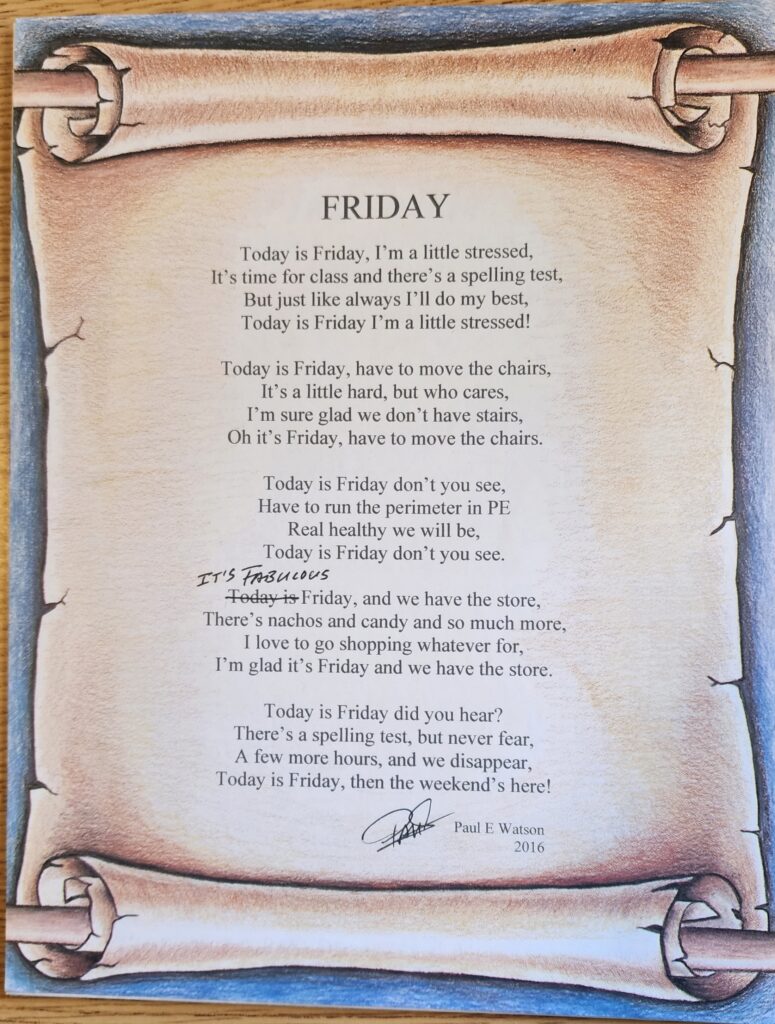 FRIDAY
Today is Friday, I'm a little stressed,
It's time for class and there's a spelling test,
But just like always I'll do my best,
Today is Friday I'm a little stressed!
Today is Friday, have to move the chairs,
It's a little hard, but who cares,
I'm sure glad we don't have stairs,
Oh it's Friday, have to move the chairs.
Today is Friday don't you see,
Have to run the perimeter in PE
Real healthy we will be,
Today is Friday don't you see.
IT'S FABULOUS
Today is Friday, and we have the store,
There's nachos and candy and so much more,
I love to go shopping whatever for,
I'm glad it's Friday and we have the store.
Today is Friday did you hear?
There's a spelling test, but never fear,
A few more hours, and we disappear,
Today is Friday, then the weekend's here!
Paul E Watson
2016